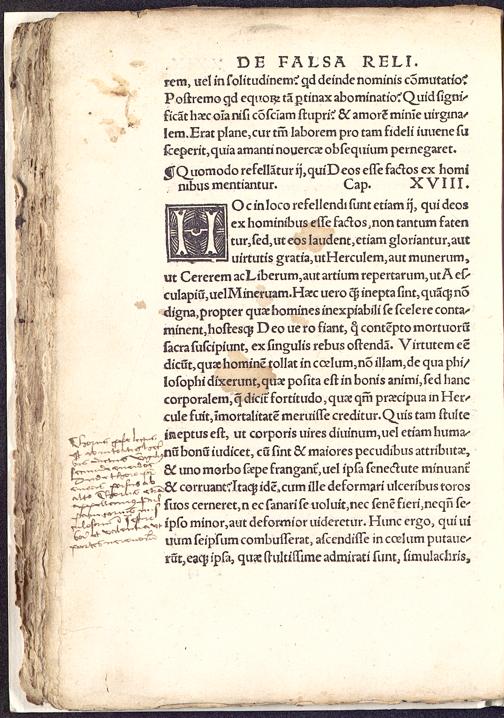 DE FALSA RELI.
rem, uel in solitudinem? qd deinde nominis cōmutatio?
Postremo qd equorꝝ tā ꝑtinax abominatio? Quid signi-
ficāt hæc oīa nisi cōsciam stupri? & amorē minīe uirgina-
lem. Erat plane, cur tm̄ laborem pro tam fideli iuuene su
sceperit, quia amanti nouercæ obsequium pernegaret.
¶Quomodo refellātur ij, qui Deos esse factos ex homi
nibus mentiantur. Cap. XVIII.
HOc in loco refellendi sunt etiam ij, qui deos
ex hominibus esse factos, non tantum faten
tur, sed, ut eos laudent, etiam gloriantur, aut
uirtutis gratia, ut Herculem, aut munerum,
ut Cererem ac Liberum, aut artium repertarum, ut Aes-
culapiū, uel Mineruam. Hæc uero q̄ inepta sint, quāq̄ nō
digna, propter quæ homines inexpiabili se scelere conta-
minent, hostesq; Deo uero fiant, q̄ contēpto mortuorū
sacra suscipiunt, ex singulis rebus ostendā. Virtutem eē
dicūt, quæ hominē tollat in cœlum, nō illam, de qua phi-
losophi dixerunt, quæ posita est in bonis animi, sed hanc
corporalem, q̄ dicit̄ fortitudo, quæ qm̄ præcipua in Her-
cule fuit, īmortalitatē meruisse creditur. Quis tam stulte
ineptus est, ut corporis uires diuinum, uel etiam huma-
nū bonū iudicet, cū sint & maiores pecudibus attributæ,
& uno morbo sæpe frangant̄, uel ipsa senectute minuant̄
& corruant? Itaq; idē, cum ille deformari ulceribus toros
suos cerneret, n ec sanari se uoluit, nec senē fieri, neqn̄ se-
ipso minor, aut deformior uideretur. Hunc ergo, qui ui
uum seipsum combusserat, ascendisse in cœlum putaue-
rūt, eaq; ipsa, quæ stultissime admirati sunt, simulachris,